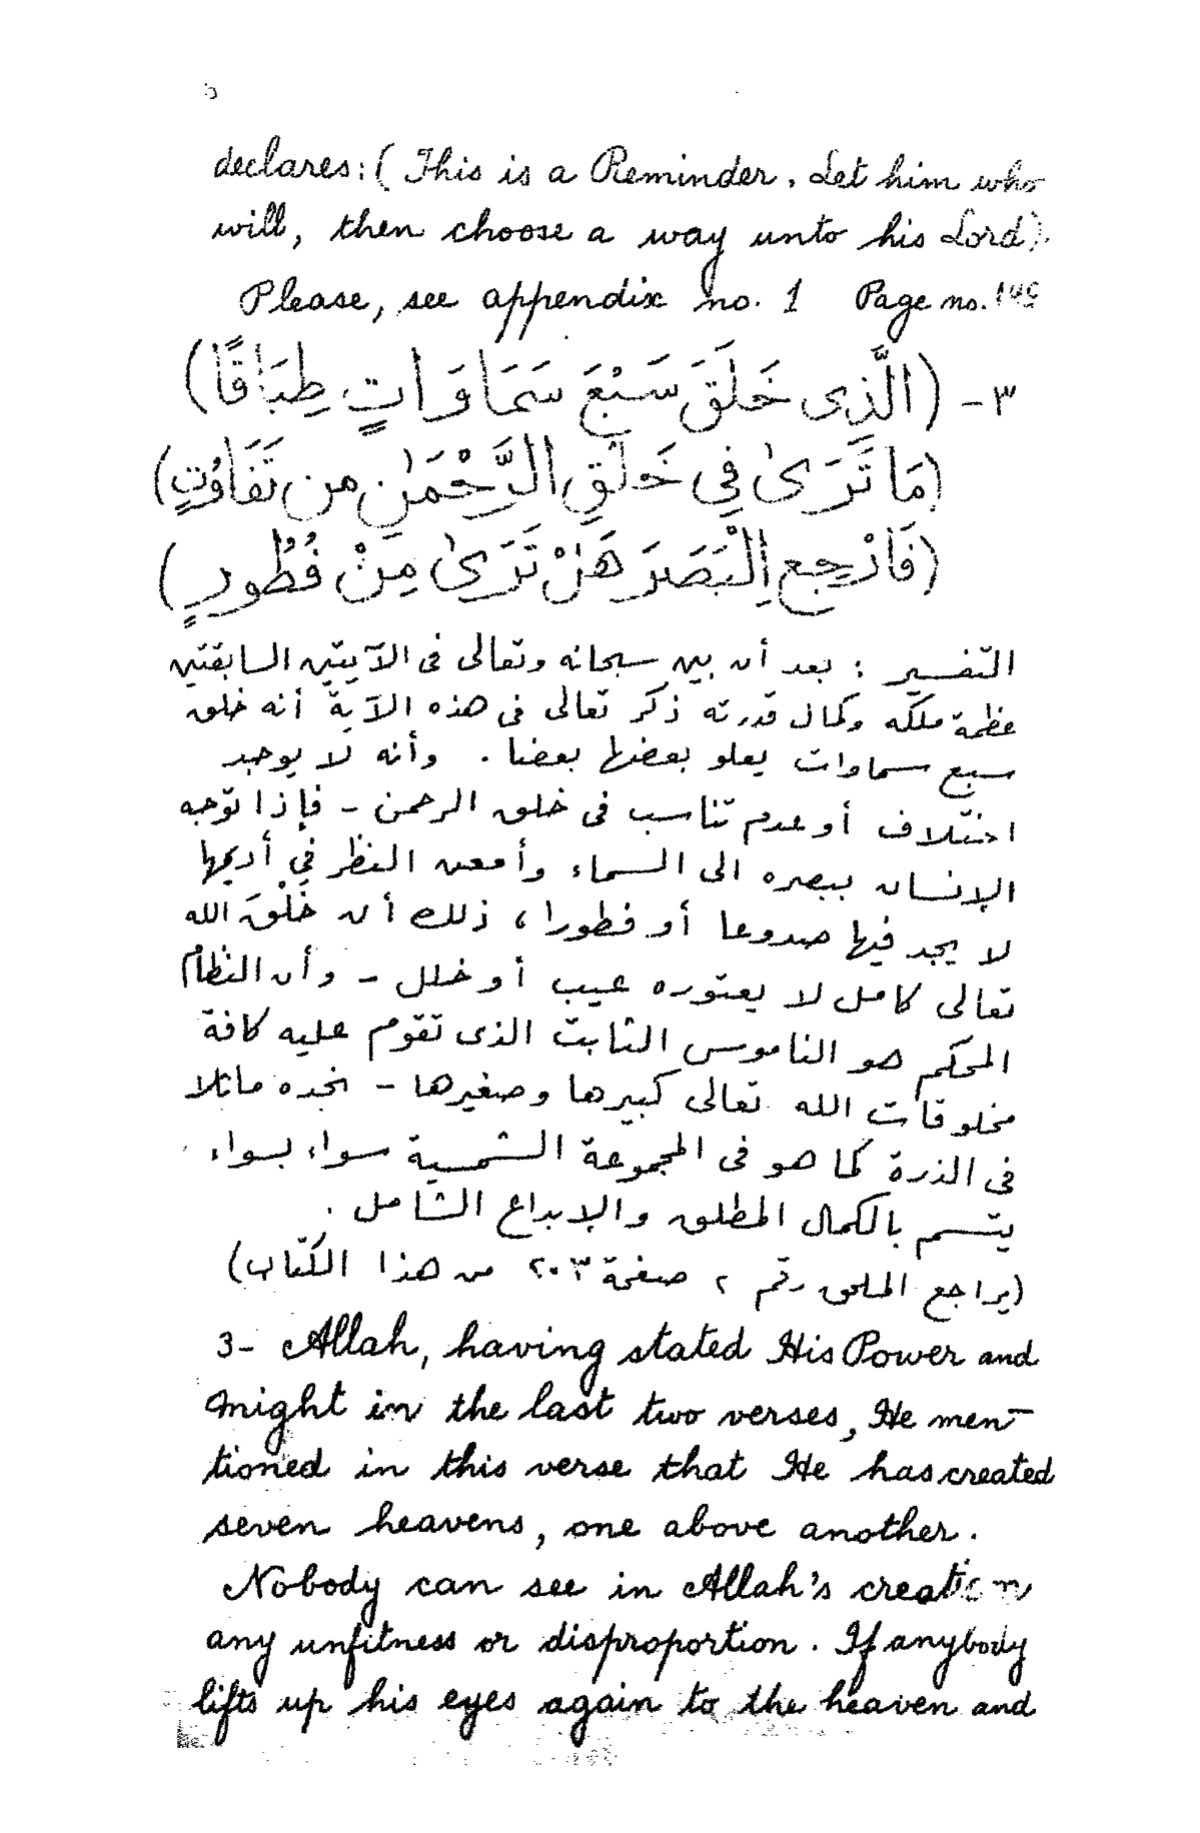 declares: ( This is a Reminder. Let him who
will, then choose a way unto his Lord).
Please, see appendix no. 1 Page no.
٣- (الَّذِى خَلَقَ سَبْعَ سَمَاوَاتٍ طِبَاقًا)
(مَا تَرَىٰ فِي خَلْقِ الرَّحْمَٰنِ من تَفَاوُتٍ)
(فَارْجِعِ الْبَصَرَ هَلْ تَرَىٰ مِنْ فُطُورٍ)
التفسير : بعد أن بين سبحانه وتعالى فى الآيتين السابقتين
عظمة ملكه وكمال قدرته ذكر تعالى فى هذه الآية أنه خلق
سبع سماوات يعلو بعضها بعضا . وأنه لا يوجد
اختلاف أو عدم تناسب فى خلق الرحمن - فإذا توجه
الإنسان ببصره الى السماء وأمعن النظر في أديمها
لا يجد فيها صدوعا أو فطورا ، ذلك أن خَلْقَ الله
تعالى كامل لا يعتوره عيب أو خلل - وأن النظام
المحكم هو الناموس الثابت الذى تقوم عليه كافة
مخلوقات الله تعالى كبيرها وصغيرها - نجده ماثلا
فى الذرة كما هو فى المجموعة الشمسية سواء بسواء
يتسم بالكمال المطلق والإبداع الشامل .
(يراجع الملحق رقم ٢ صفحة ٢٠٣ من هذا الكتاب)
3- Allah, having stated His Power and
might in the last two verses, He men-
tioned in this verse that He has created
seven heavens, one above another.
Nobody can see in Allah's creation
any unfitness or disproportion. If anybody
lifts up his eyes again to the heaven and